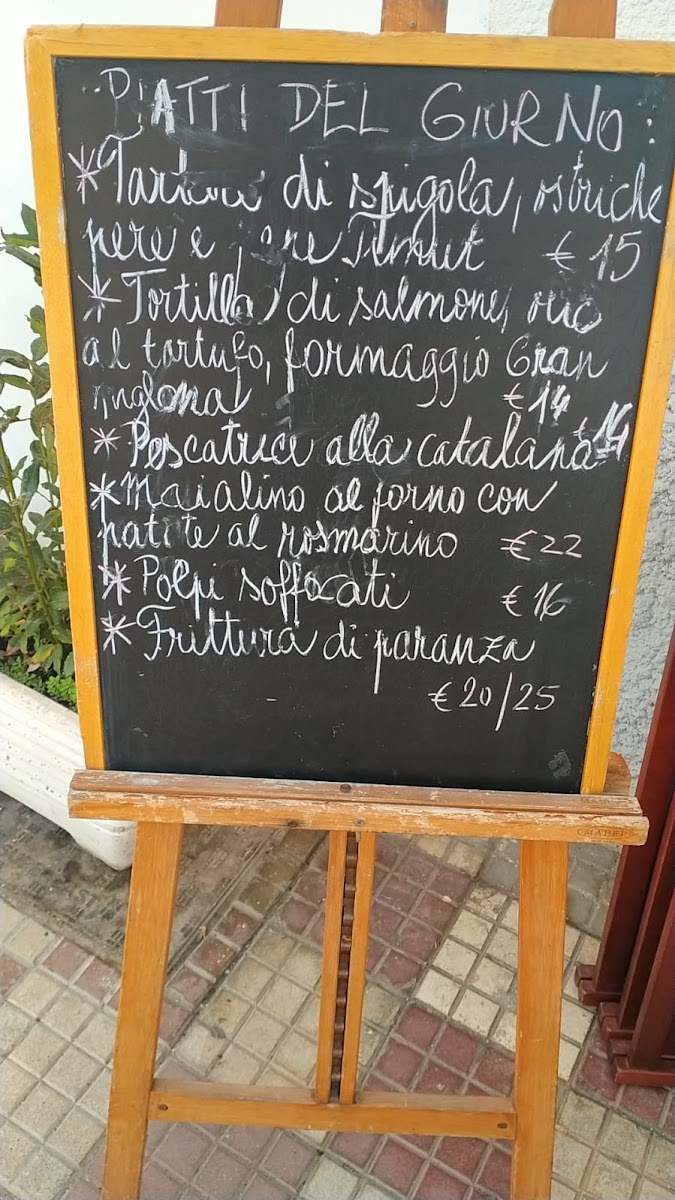 PIATTI DEL GIURNO:
* Tartare di spigola, ostriche
pere e Timut € 15
* Tortilla di salmone,
al tartufo, formaggio Gran
€ 14
* Pescatrice alla catalana € 14
* Maialino al forno con
patate al rosmarino € 22
* Polpi soffocati € 16
* Frittura di paranza
€ 20/25